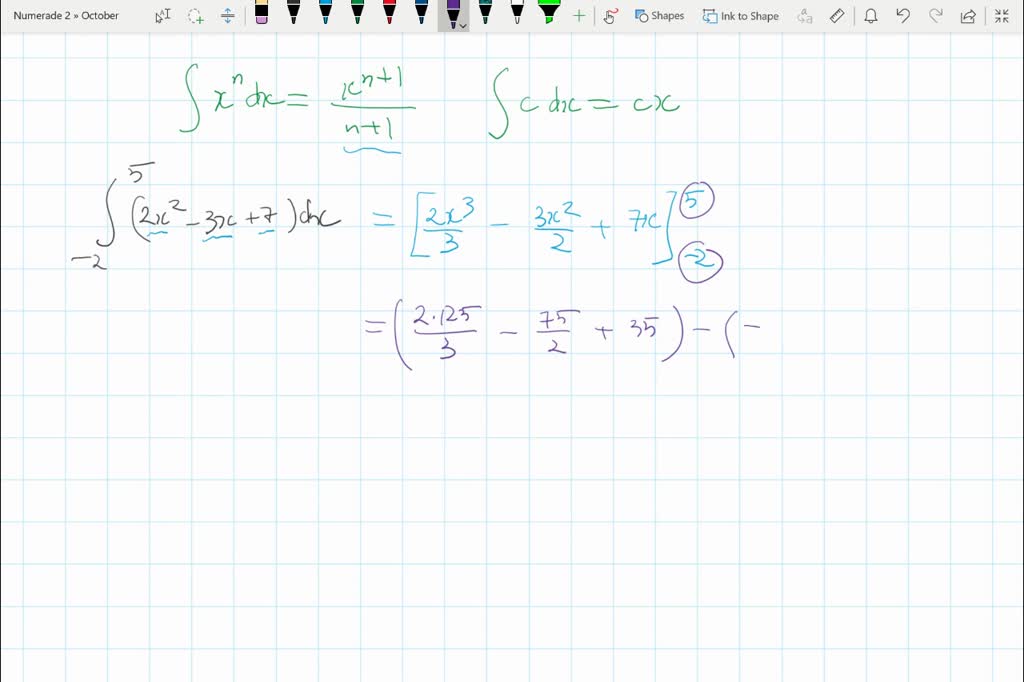 Numerade 2 » October Shapes Ink to Shape
∫ xⁿ dx = xⁿ⁺¹/(n+1) ∫ c dx = cx
∫₋₂⁵ (2x² - 3x + 7) dx = [2x³/3 - 3x²/2 + 7x]₋₂⁵
= (2·125/3 - 75/2 + 35) - (-